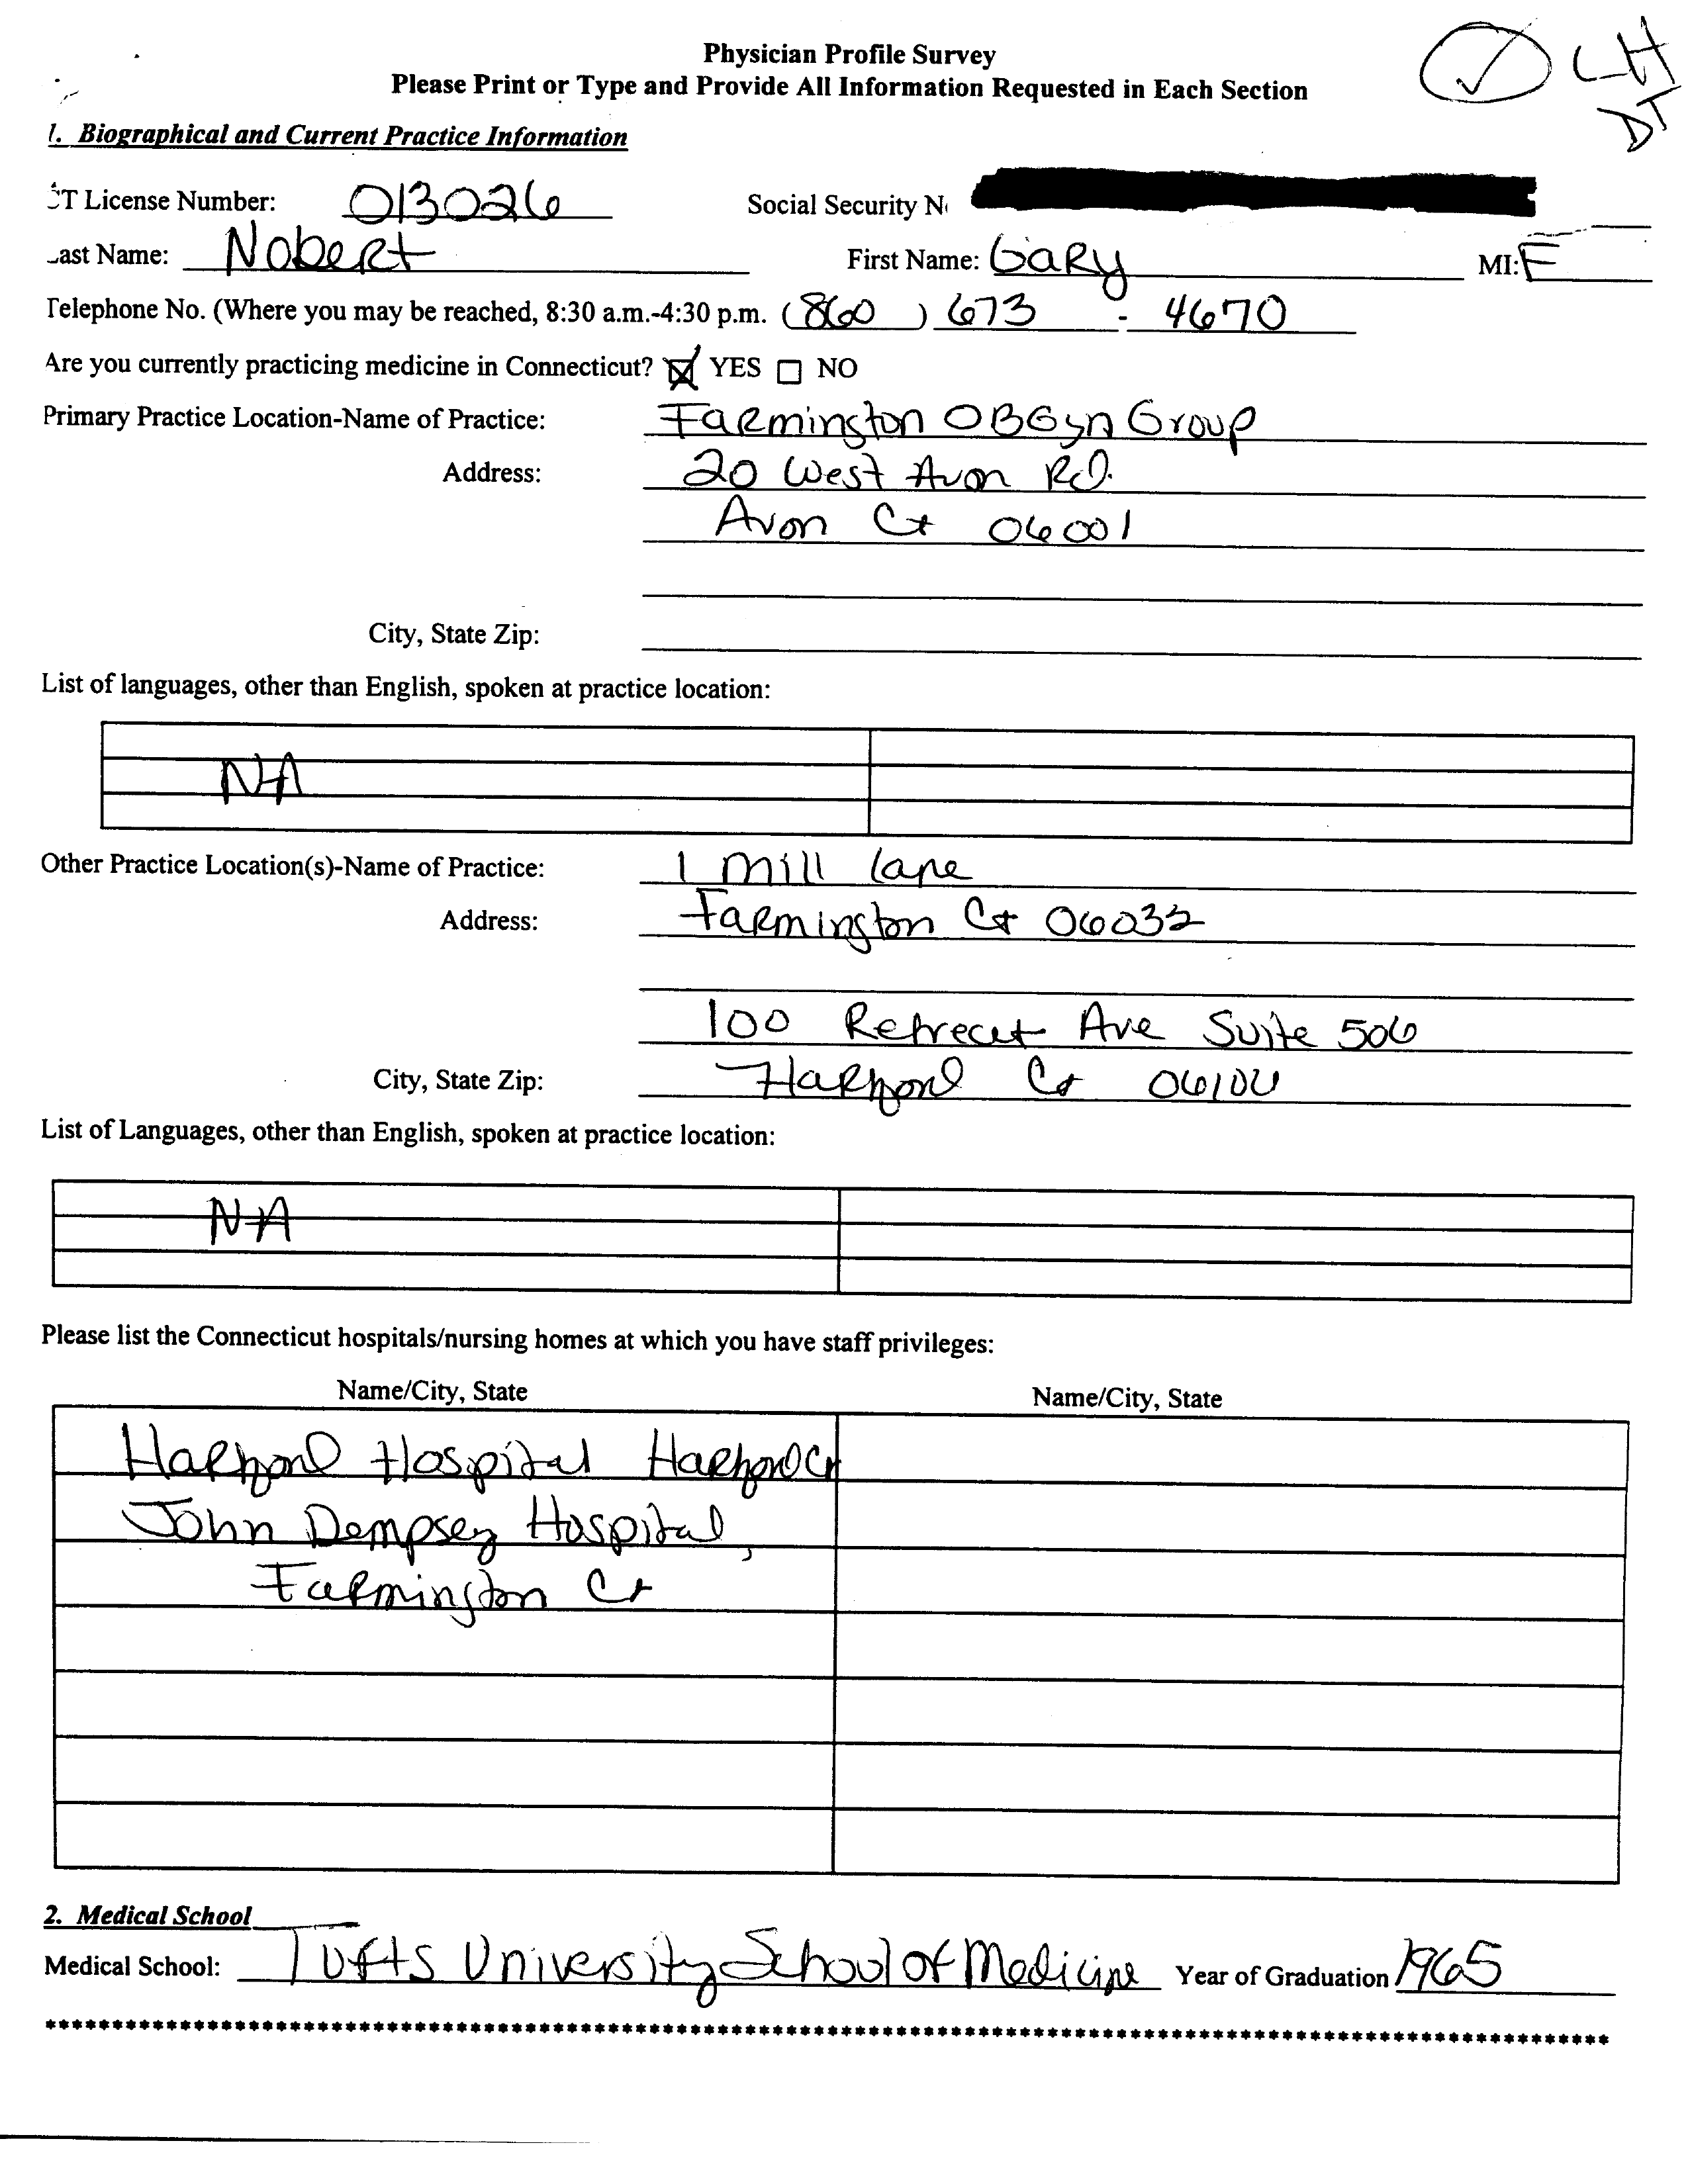 Physician Profile Survey
Please Print or Type and Provide All Information Requested in Each Section
LH
DT
1. Biographical and Current Practice Information
CT License Number: 013026 Social Security N
Last Name: Nobert First Name: Gary MI: F
Telephone No. (Where you may be reached, 8:30 a.m.-4:30 p.m. (860) 673 - 4670
Are you currently practicing medicine in Connecticut? ☒ YES ☐ NO
Primary Practice Location-Name of Practice: Farmington OBGyn Group
Address: 20 West Avon Rd.
Avon Ct 06001
City, State Zip:
List of languages, other than English, spoken at practice location:
NA
Other Practice Location(s)-Name of Practice: 1 Mill Lane
Address: Farmington Ct 06032
100 Retreat Ave Suite 506
City, State Zip: Hartford Ct 06106
List of Languages, other than English, spoken at practice location:
NA
Please list the Connecticut hospitals/nursing homes at which you have staff privileges:
Name/City, State Name/City, State
Hartford Hospital Hartford Ct
John Dempsey Hospital,
Farmington Ct
2. Medical School
Medical School: Tufts University School of Medicine Year of Graduation 1965